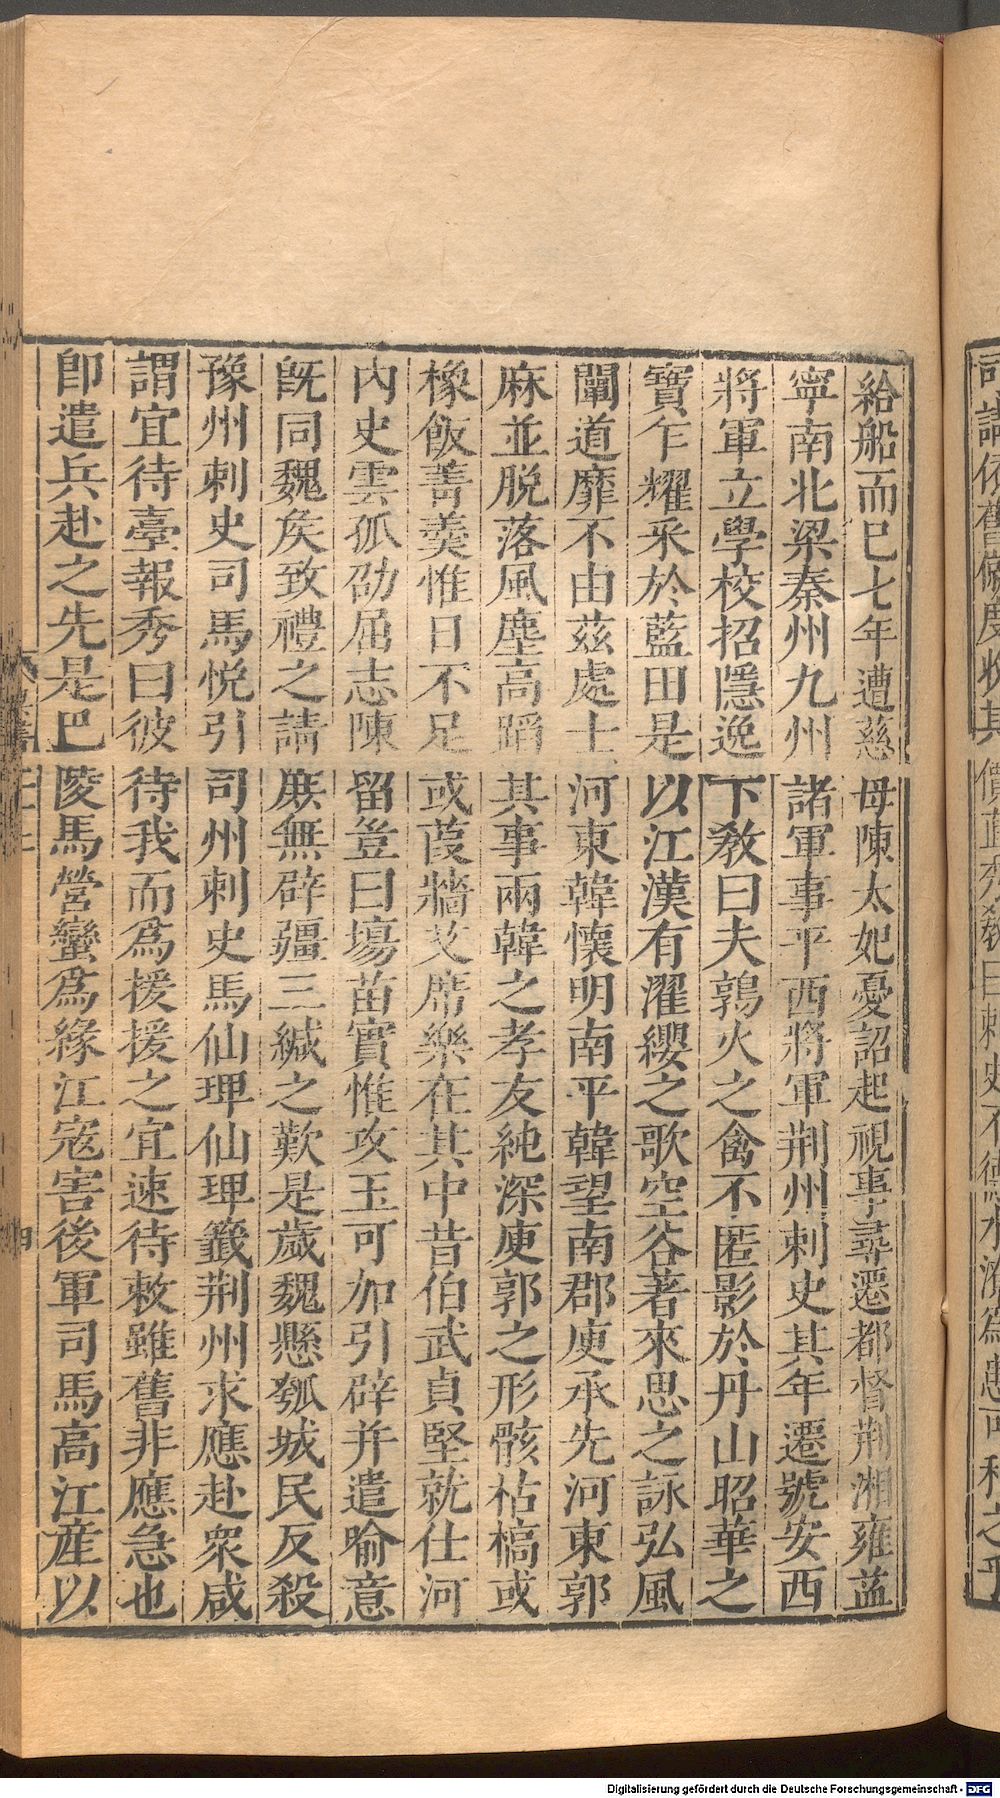 給船而巳七年遭慈母陳太妃憂詔起視事尋遷都督荆湘雍益
寧南北梁秦州九州諸軍事平西將軍荆州刺史其年遷號安西
將軍立學校招隱逸下教曰夫鶉火之禽不匿影於丹山昭華之
寶乍耀采於藍田是以江漢有濯纓之歌空谷著來思之詠弘風
闡道靡不由茲處士河東韓懷明南平韓望南郡庾承先河東郭
麻並脱落風塵高蹈其事兩韓之孝友純深庾郭之形骸枯槁或
橡飯菁羹惟日不足或葭牆艾席樂在其中昔伯武貞堅就仕河
内史雲孤劭屈志陳留豈曰塲苗實惟攻玉可加引辟并遣喻意
旣同魏矦致禮之請庶無辟疆三緘之歎是歲魏懸瓠城民反殺
豫州刺史司馬悅引司州刺史馬仙琕仙琕籖荆州求應赴衆咸
謂宜待臺報秀曰彼待我而爲援援之宜速待敕雖舊非應急也
卽遣兵赴之先是巴陵馬營蠻爲緣江寇害後軍司馬高江産以
Digitalisierung gefördert durch die Deutsche Forschungsgemeinschaft - DFG